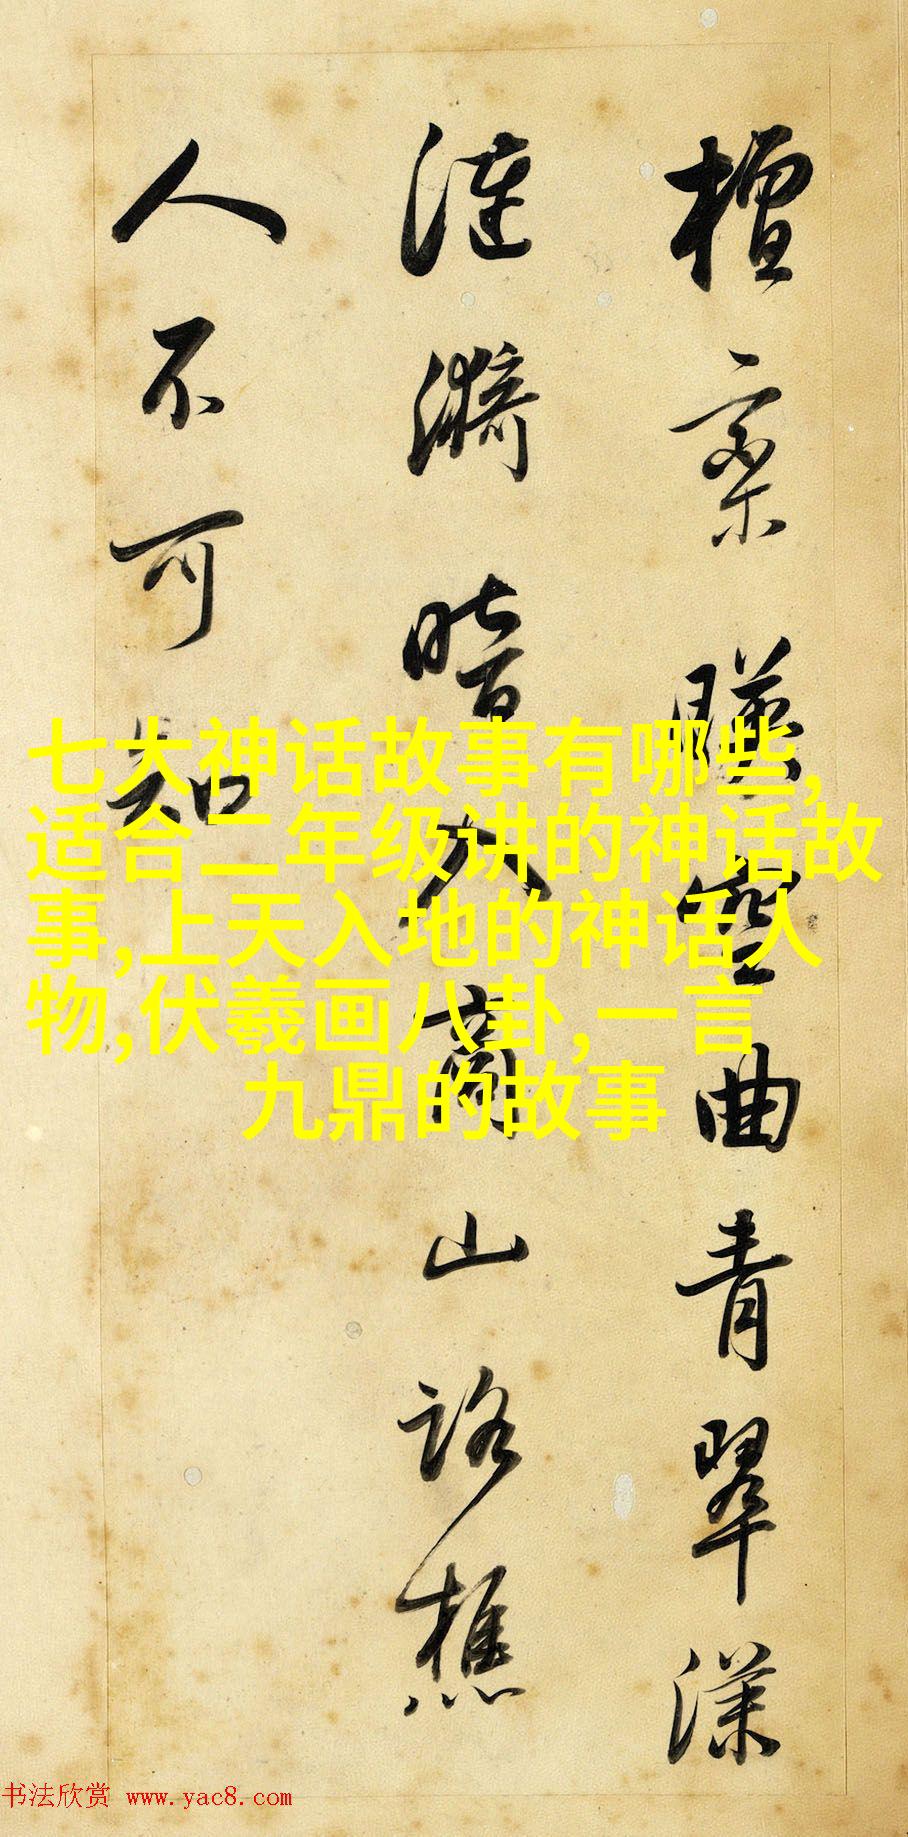 檀欒暎空曲青翠漾
漣漪暗入商山路樵
人不可知
七大神话故事有哪些,
适合二年级讲的神话故
事,上天入地的神话人
物,伏羲画八卦,一言
九鼎的故事
书法欣赏 www.yac8.com